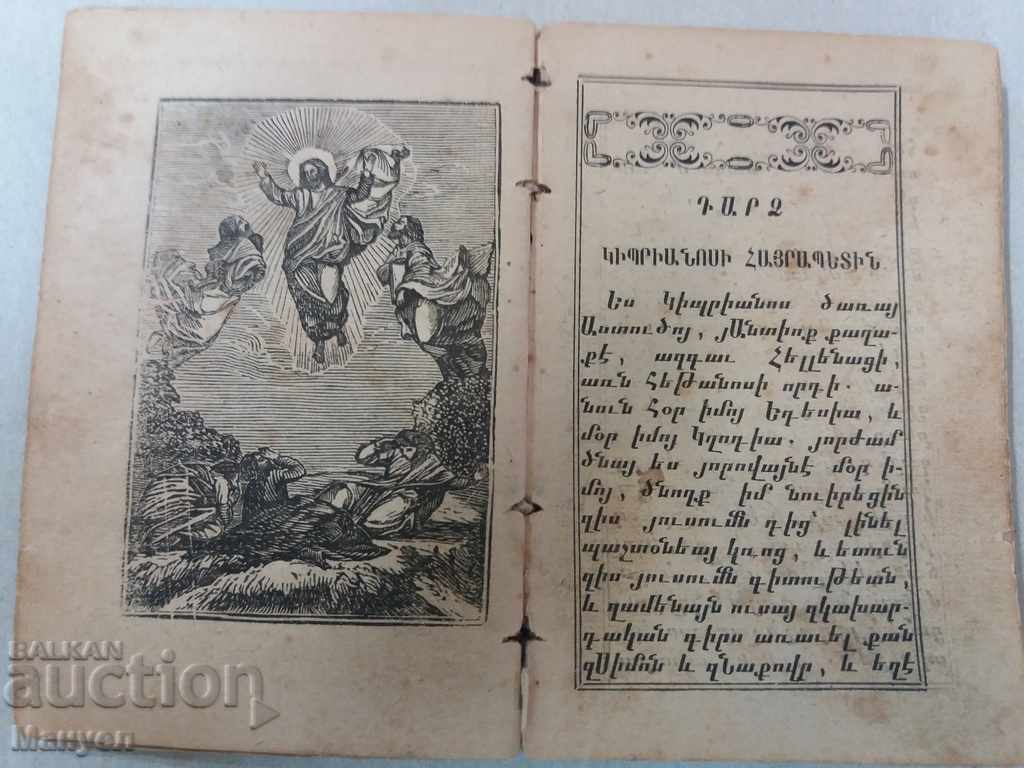 ԴԱՐՁ
ԿԻՊՐԻԱՆՈՍԻ ՀԱՅՐԱՊԵՏԻՆ
Ես Կիպրիանոս ծառայ
Աստուծոյ, յԱնտիոք քաղա-
քէ, ազգաւ Հելլենացի,
առն Հեթանոսի որդի. ա-
նուն Հօր իմոյ Եդեսիա, և
մօր իմոյ Կղօդիա. յորժամ
ծնայ ես յորովայնէ մօր ի-
մոյ, ծնողք իմ նուիրեցին
զիս յուսումն դից՝ լինել
պաշտօնեայ կռոց, և ետուն
զիս յուսումն գիտութեան,
և զամենայն ուսայ զկախար-
դական գիրս առաւել քան
զՍիմօն և զՆաքովր, և եղէ
BALKAN
auction
Manyon